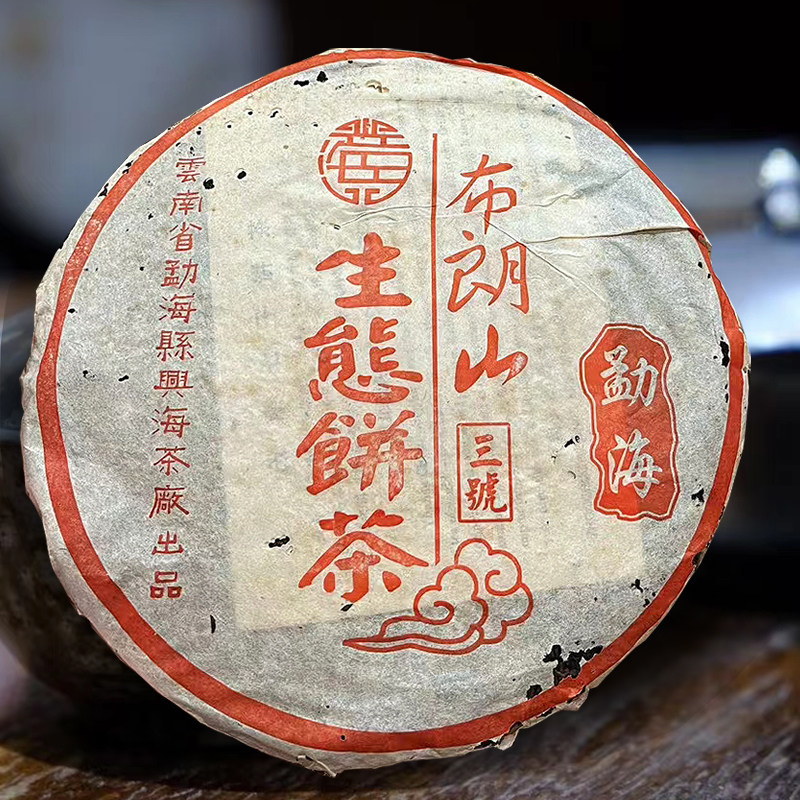 勐海
布朗山
三號
生態餅茶
雲南省勐海縣興海茶廠出品